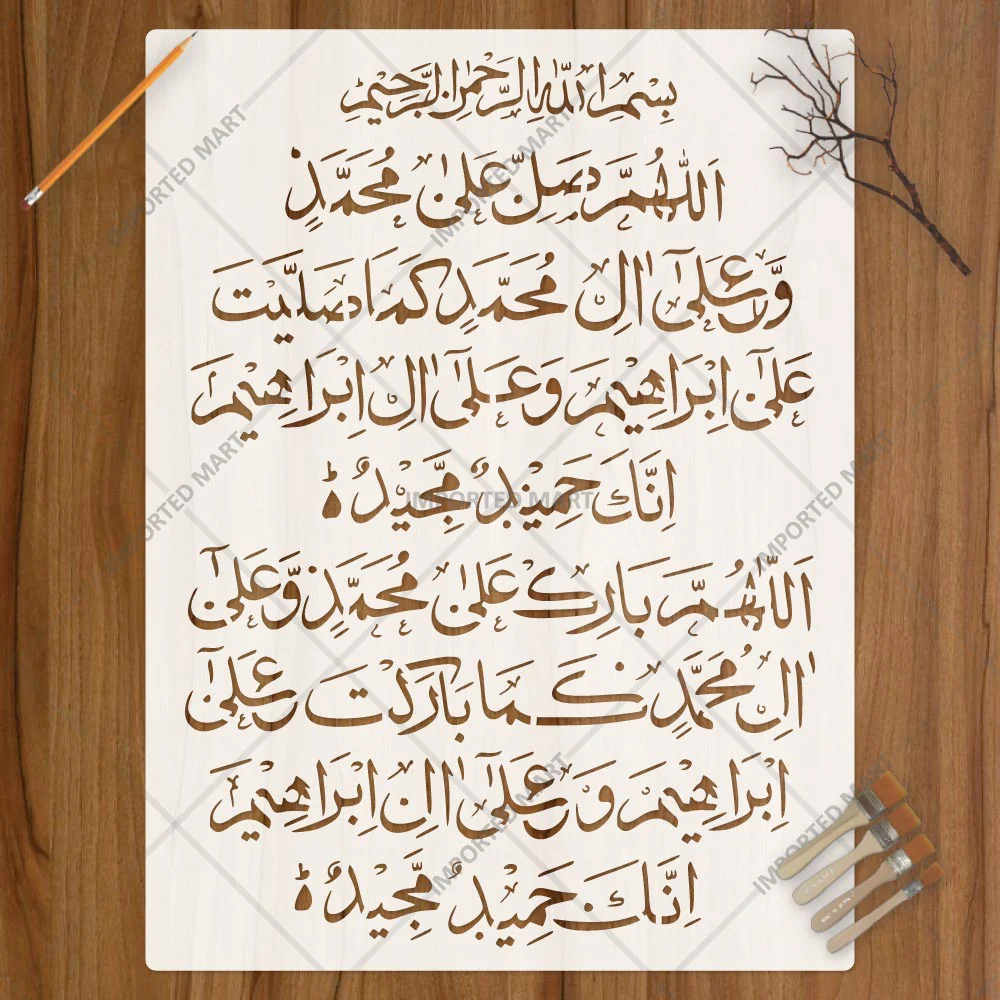 بِسْمِ اللّٰهِ الرَّحْمٰنِ الرَّحِيْمِ
اَللّٰهُمَّ صَلِّ عَلٰى مُحَمَّدٍ
وَّعَلٰٓى اٰلِ مُحَمَّدٍ كَمَا صَلَّيْتَ
عَلٰٓى اِبْرَاهِيْمَ وَعَلٰٓى اٰلِ اِبْرَاهِيْمَ
اِنَّكَ حَمِيْدٌ مَّجِيْدٌ ؕ
اَللّٰهُمَّ بَارِكْ عَلٰى مُحَمَّدٍ وَّعَلٰٓى
اٰلِ مُحَمَّدٍ كَمَا بَارَكْتَ عَلٰٓى
اِبْرَاهِيْمَ وَعَلٰٓى اٰلِ اِبْرَاهِيْمَ
اِنَّكَ حَمِيْدٌ مَّجِيْدٌ ؕ
IMPORTED MART
IMPORTED MART
IMPORTED MART
IMPORTED MART
IMPORTED MART
IMPORTED MART
IMPORTED MART
IMPORTED MART
IMPORTED MART